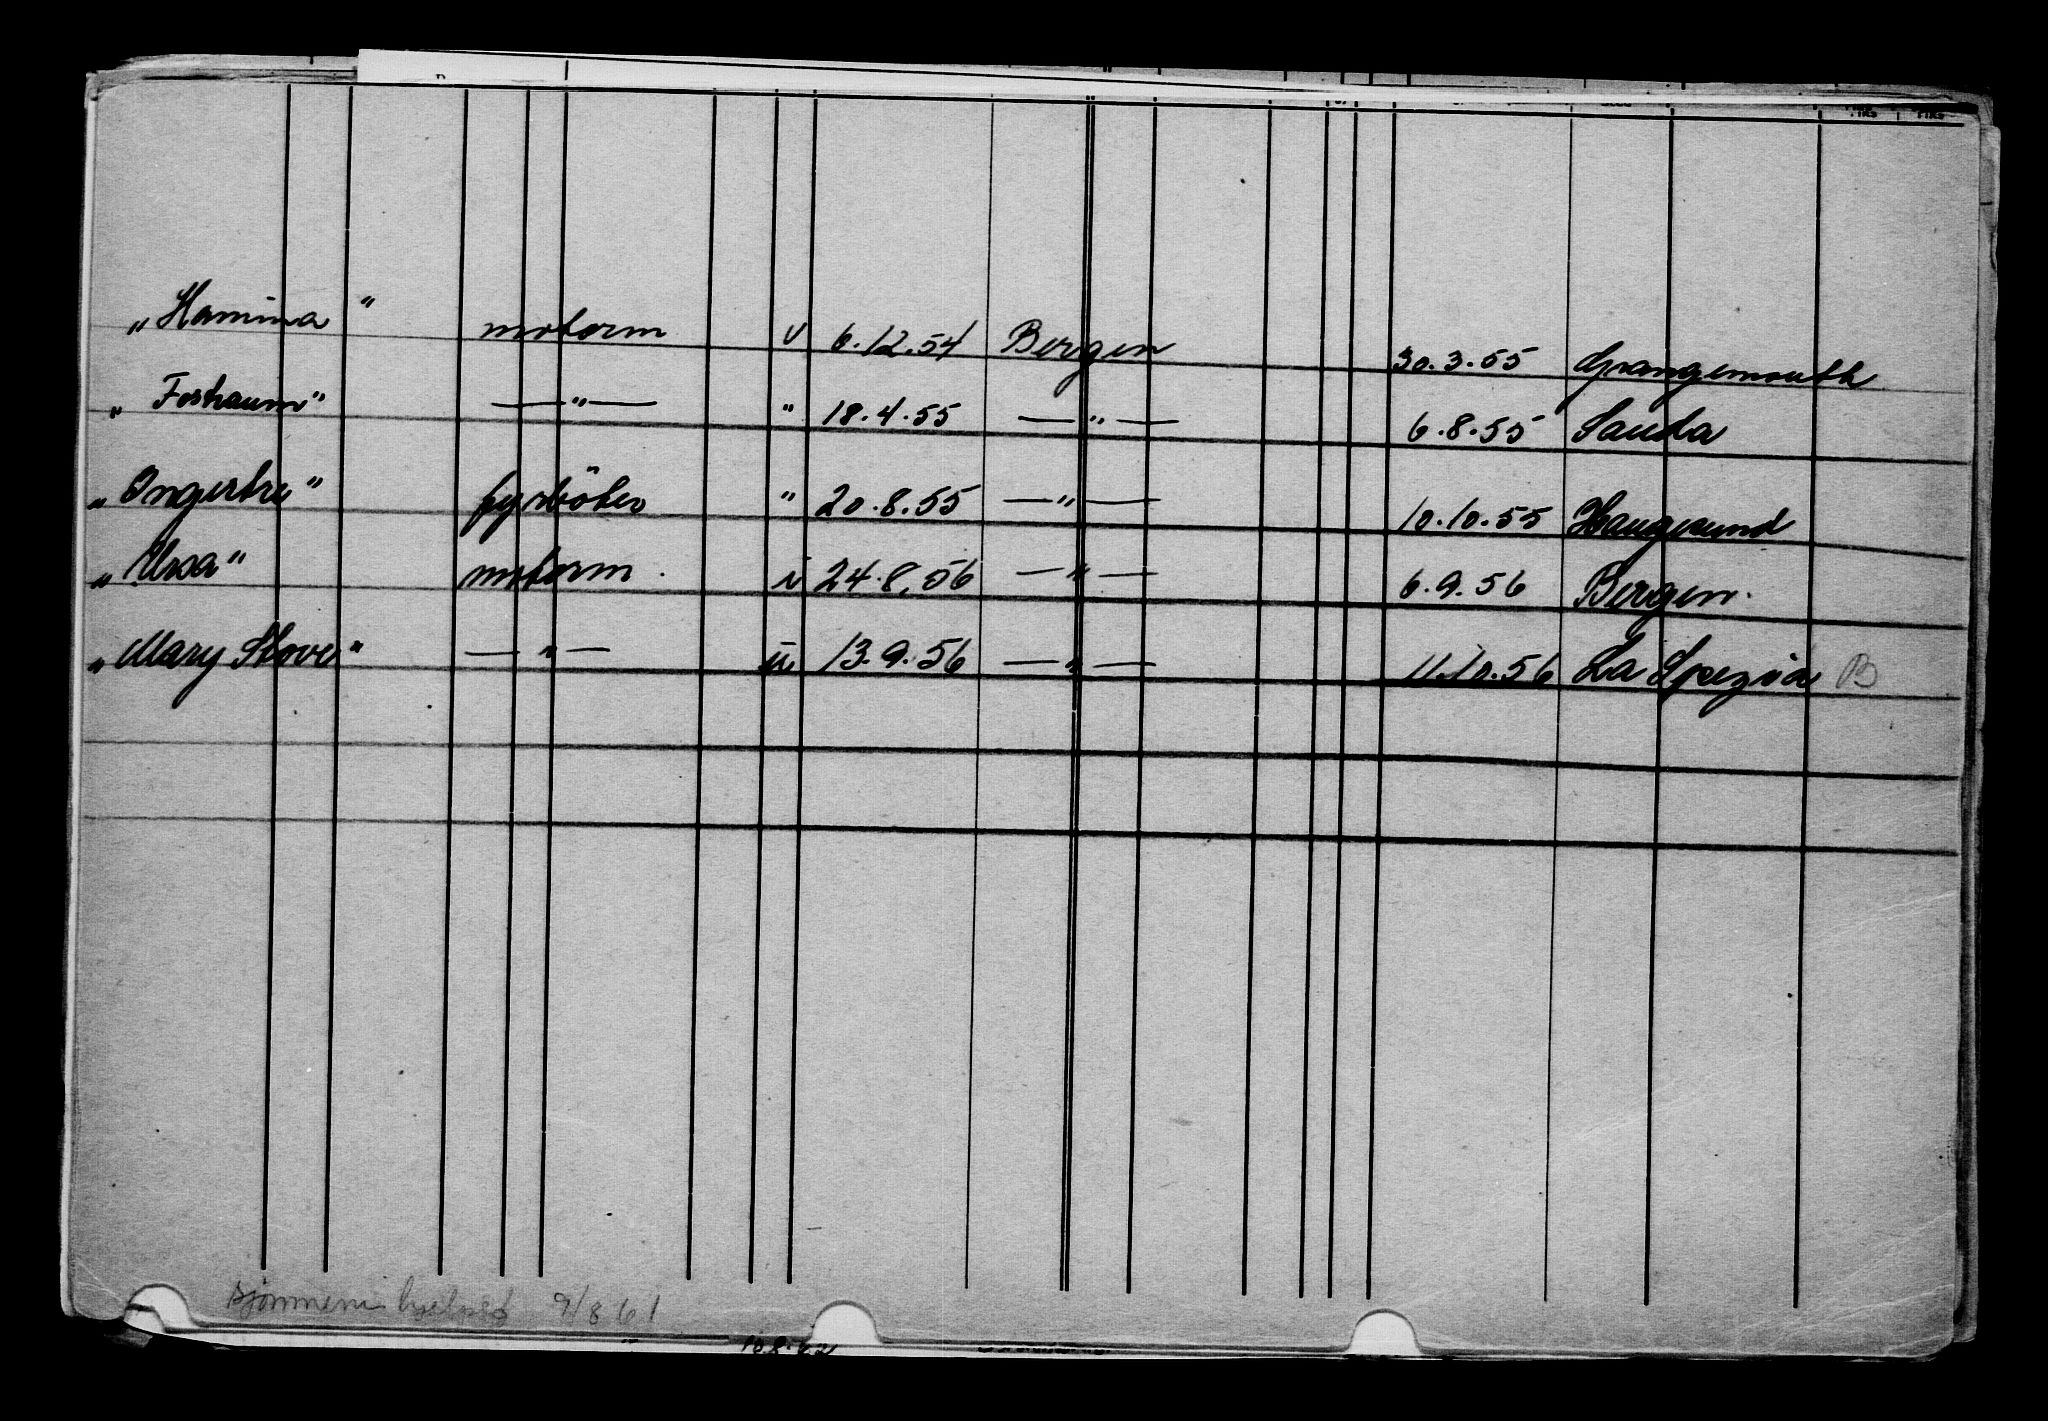 „Hamina" motorm v 6.12.54 Bergen 30.3.55 Grangemouth
„Fostraum" —"— " 18.4.55 —"— 6.8.55 Sauda
„Ingertre" fyrböter " 20.8.55 —"— 10.10.55 Haugesund
„Ursa" motorm. u 24.8.56 —"— 6.9.56 Bergen.
„Mary Stove" —"— u 13.9.56 —"— 11.10.56 La Spezia B
9/8 61